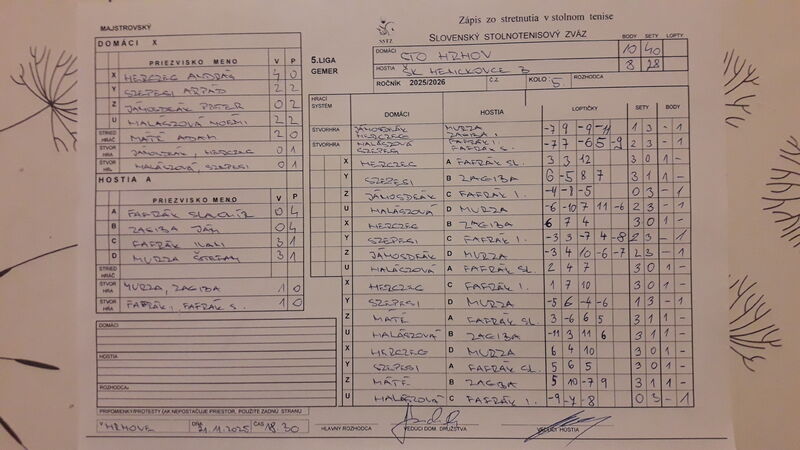 MAJSTROVSKÝ
DOMÁCI X
PRIEZVISKO MENO V P
X HERCZEG ANDRÁŠ 4 0
Y SZEPESI ARPÁD 2 2
Z JÁMOSDEÁK PETER 0 2
U MALÁSZOVÁ NOÉMI 2 2
STRIED HRÁČ MÁTÉ ADAM 2 0
ŠTVOR HRA JÁMOSDEÁK, HERCZEG 0 1
ŠTVOR HRA MALÁSZOVÁ, SZEPESI 0 1
HOSTIA A
PRIEZVISKO MENO V P
A FAFRÁK SLAVOMÍR 0 4
B ZAGIBA JÁN 0 4
C FAFRÁK IVAN 3 1
D MURZA ŠTEFAN 3 1
STRIED HRÁČ
ŠTVOR HRA MURZA, ZAGIBA 1 0
ŠTVOR HRA FAFRÁK I, FAFRÁK S. 1 0
DOMÁCI
HOSTIA
ROZHODCA:
PRIPOMIENKY/PROTESTY (AK NEPOSTAČUJE PRIESTOR, POUŽITE ZADNÚ STRANU
V HRHOVE DŇA 21.11.2025 ČAS 18.30
Zápis zo stretnutia v stolnom tenise
SSTZ
SLOVENSKÝ STOLNOTENISOVÝ ZVÄZ
BODY SETY LOPTY
5.LIGA
GEMER
DOMÁCI STO HRHOV 10 40
HOSTIA ŠK HENCKOVCE B 8 28
ROČNÍK 2025/2026 Č.Z KOLO: 5. ROZHODCA
HRACÍ SYSTÉM DOMÁCI HOSTIA LOPTIČKY SETY BODY
ŠTVORHRA JÁMOSDEÁK HERCZEG MURZA ZAGIBA J. -7 9 -9 -11 1 3 - 1
ŠTVORHRA MALÁSZOVÁ SZEPESI FAFRÁK I. FAFRÁK S. -7 7 -6 5 -9 2 3 - 1
X HERCZEG A FAFRÁK SL. 3 3 12 3 0 1 -
Y SZEPESI B ZAGIBA 6 -5 8 7 3 1 1 -
Z JÁMOSDEÁK C FAFRÁK I. -4 -8 -5 0 3 - 1
U MALÁSZOVÁ D MURZA -6 -10 7 11 -6 2 3 - 1
X HERCZEG B ZAGIBA 6 7 4 3 0 1 -
Y SZEPESI C FAFRÁK I. -3 -3 7 4 -8 2 3 - 1
Z JÁMOSDEÁK D MURZA -3 4 10 -6 -7 2 3 - 1
U MALÁSZOVÁ A FAFRÁK SL. 2 4 7 3 0 1 -
X HERCZEG C FAFRÁK I. 1 7 10 3 0 1 -
Y SZEPESI D MURZA -5 6 -4 -6 1 3 - 1
Z MÁTÉ A FAFRÁK SL. 3 -6 6 5 3 1 1 -
U MALÁSZOVÁ B ZAGIBA -11 3 11 6 3 1 1 -
X HERCZEG D MURZA 6 4 10 3 0 1 -
Y SZEPESI A FAFRÁK SL. 5 6 5 3 0 1 -
Z MÁTÉ B ZAGIBA 5 10 -7 9 3 1 1 -
U MALÁSZOVÁ C FAFRÁK I. -9 -7 -8 0 3 - 1
HLAVNÝ ROZHODCA VEDÚCI DOM. DRUŽSTVA VEDÚCI HOSTIA